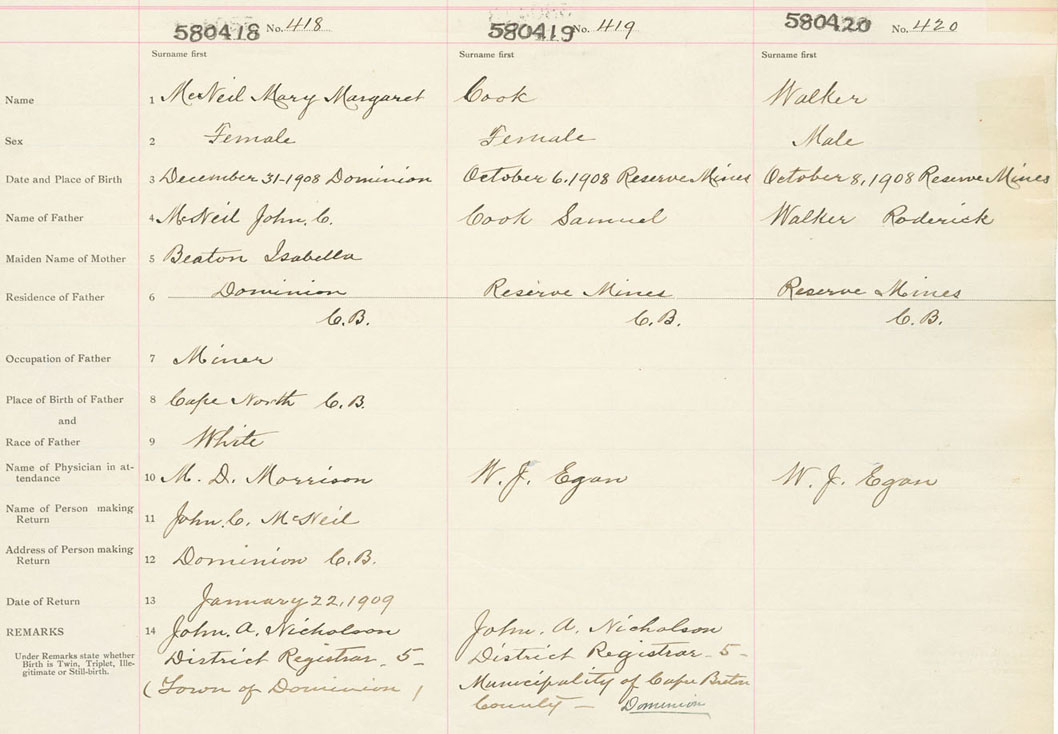 580418 No. 418 580419 No. 419 580420 No. 420
Surname first Surname first Surname first
Name 1 McNeil Mary Margaret Cook Walker
Sex 2 Female Female Male
Date and Place of Birth 3 December 31-1908 Dominion October 6, 1908 Reserve Mines October 8, 1908 Reserve Mines
Name of Father 4 McNeil John. C. Cook Samuel Walker Roderick
Maiden Name of Mother 5 Beaton Isabella
Residence of Father 6 Dominion Reserve Mines Reserve Mines
C.B. C.B. C.B.
Occupation of Father 7 Miner
Place of Birth of Father 8 Cape North C.B.
and
Race of Father 9 White
Name of Physician in at-
tendance 10 M. D. Morrison W. J. Egan W. J. Egan
Name of Person making
Return 11 John. C. McNeil
Address of Person making
Return 12 Dominion C.B.
Date of Return 13 January 22, 1909
REMARKS 14 John. A. Nicholson John. A. Nicholson
Under Remarks state whether
Birth is Twin, Triplet, Ille-
gitimate or Still-birth.
District Registrar - 5 - District Registrar - 5 -
(Town of Dominion) Municipality of Cape Breton
County — Dominion